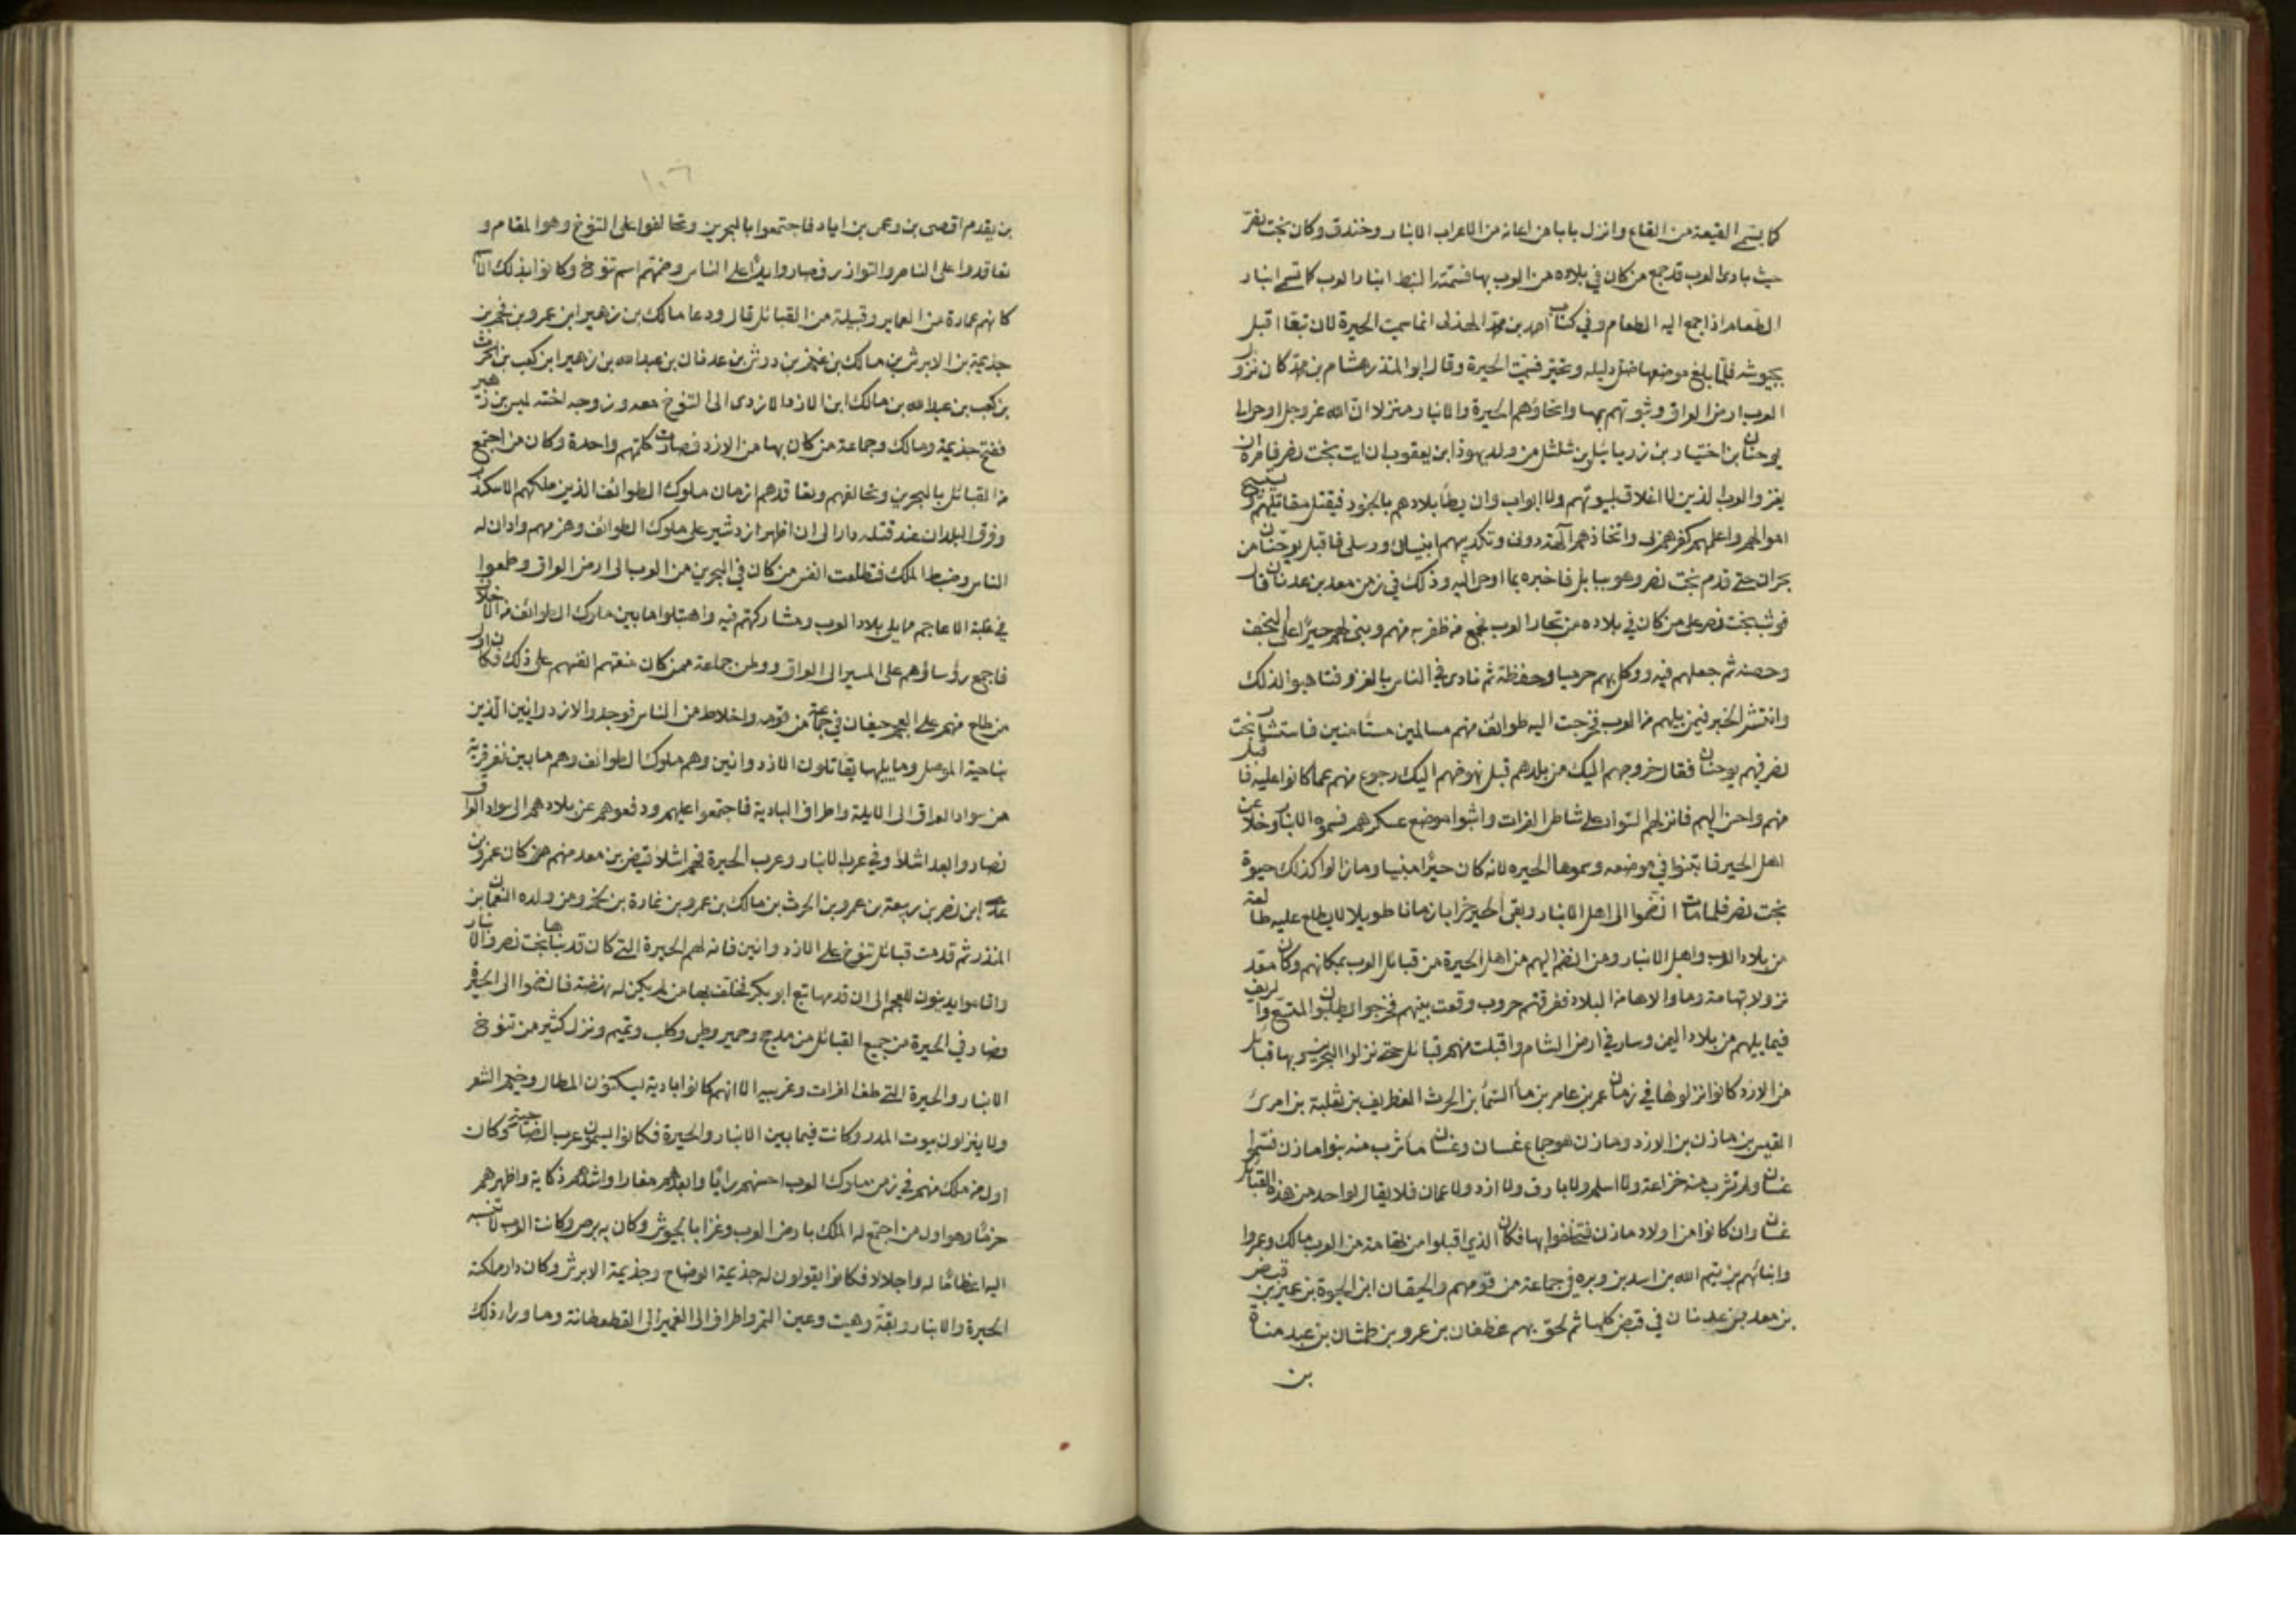 كما يسمى القيعة من القاع وانزل بابا من اعانه من الاعراب الانبار وخندق وكان بخت نصر
حيث بادى العرب قد جمع من كان في بلاده من العرب بها فسمتها النبط انبار العرب كما تسمى انبار
الطعام اذا جمع اليه الطعام وفي كتاب احمد بن محمد الهمذانى انما سميت الحيرة لان تبعا اقبل
بجيوشه فلما بلغ موضعها ضل دليله وتحير فسميت الحيرة وقال ابو المنذر هشام بن محمد كان نزول
العرب ارض العراق وثبوتهم بها واتخاذهم الحيرة والانبار منزلا ان الله عز وجل اوحى
يوحنان بن اختيار بن زربابيل بن شلثيل من ولد يهوذا ابن يعقوب ان ايت بخت نصر فامره ان
يغزو العرب الذين لا اغلاق لبيوتهم ولا ابواب وان يطأ بلادهم بالجنود فيقتل مقاتلهم ويستبيح
اموالهم واعلمهم كفرهم بى واتخاذهم آلهة دونى وتكذيبهم انبيائى ورسلى فاقبل يوحنان من
بحران حتى قدم بخت نصر وهو ببابل فاخبره بما اوحى اليه وذلك في زمن معد بن عدنان قال
فوثب بخت نصر على من كان في بلاده من تجار العرب فجمع من ظفر به منهم وبنى لهم حيرا على النجف
وحصنه ثم جعلهم فيه ووكل بهم حرسا وحفظة ثم نادى في الناس بالغزو فتاهبوا لذلك
وانتشر الخبر فيمن يليهم من العرب فخرجت اليه طوائف منهم مسالمين مستأمنين فاستشار بخت
نصر فيهم يوحنان فقال خروجهم اليك من بلدهم قبل نهوضهم اليك رجوع منهم عما كانوا عليه فاقبل
منهم واحسن اليهم فانزلهم السواد على شاطئ الفرات وابتنوا موضع عسكرهم فسموه الانبار وخلا عن
اهل الحير فابتنوا في موضعه وسموها الحيره لانه كان حيرا مبنيا وما زالوا كذلك حيوة
بخت نصر فلما مات انضموا الى اهل الانبار وبقى الحير خرابا زمانا طويلا لا يطلع عليه طالعة
من بلاد العرب واهل الانبار ومن انضم اليهم من اهل الحيرة من قبائل العرب بمكانهم وكان معد
نزولا بتهامة وما والاها من البلاد ففرقتهم حروب وقعت بينهم فخرجوا يطلبون المتسع والريف
فيما يليهم من بلاد اليمن ومشارف ارض الشام واقبلت منهم قبائل حتى نزلوا البحرين وبها قبائل
من الازد كانوا نزلوها في زمان عمر بن عامر بن ماء السماء بن الحرث الغطريف بن ثعلبة بن امرئ
القيس بن مازن بن الازد ومازن هو جماع غسان وغسان ماء شرب منه بنوا مازن فسموا
غسان ولم تشرب منه خزاعة ولا اسلم ولا بارق ولا ازد ولا عمان فلا يقال لواحد من هذه القبائل
غسان وان كانوا من اولاد مازن فتخلفوا بها فكان الذين اقبلوا من تهامة من العرب مالك وعمروا
وابنائهم بن تيم الله بن اسد بن وبره في جماعة من قومهم والحيقان ابن الحيوة بن عمير بن قبض
بن معد بن عدنان في قبض كلها ثم لحق بهم غطفان بن عرو بن طشان بن عبد مناة
بن
١٠٦
بن يقدم اقصى بن دعمى بن اياد فاجتمعوا بالبحرين وتحالفوا على التنوخ وهو المقام و
تعاقدوا على التناصر والتوازر فصاروا يدا على الناس وضمهم اسم تنوخ وكانوا بذلك الاسم
كانهم عمارة من العمائر وقبيلة من القبائل قال ودعا مالك بن زهير ابن عمرو بن فهم بن
جذيمة بن الابرش بن مالك بن فهم بن دوش بن عدنان بن عبد الله بن زهير ابن كعب بن الحرث
بن كعب بن عبد الله بن مالك ابن الازد الازدى الى التنوخ معه وزوجه اخته لميس بن زهير
فتنخ جذيمة ومالك وجماعة من كان بها من الازد فصارت كلمتهم واحدة وكان من اجتمع
من القبائل بالبحرين وتحالفهم وتعاقدهم ازمان ملوك الطوائف الذين ملكهم الاسكندر
وفرق البلدان عند قتله دارا الى ان اظهر ازدشير على ملوك الطوائف وهزمهم وادان له
الناس وضبط الملك فتطلعت انفس من كان في البحرين من العرب الى ارض العراق وطمعوا
في غلبة الاعاجم مما يلى بلاد العرب ومشاركتهم فيه واهتبلوا ما بين ملوك الطوائف من الاختلاف
فاجمع رؤساؤهم على المسير الى العراق ووطن جماعة ممن كان معهم انفسهم على ذلك فكان اول
من طلع منهم على العجم حيقان في جماعة من قومه واخلاط من الناس فوجدوا الازدوانين الذين
بناحية الموصل وما يليها يقاتلون الازدوانين وهم ملوك الطوائف وهم ما بين نفر قرية
من سواد العراق الى الابلة واطراف البادية فاجتمعوا عليهم ودفعوهم عن بلادهم الى سواد العراق
فصاروا بعد اشلاء وفي عرب الانبار وعرب الحيرة فهم اشلاء قبض بن معد منهم من كان عمرو بن
عدى ابن نصر بن ربيعة بن عمرو بن الحرث بن مالك بن عمرو بن نمارة بن لخم ومن ولده النعمان بن
المنذر ثم قدمت قبائل تنوخ على الازدوانين فانزلهم الحيرة التى كان قد بناها بخت نصر والانبار
واقاموا يدينون للعجم الى ان قدمها تبع ابو بكر فخلف بها من لم يكن له نهضة فانضموا الى الحيرة
وصار في الحيرة من جميع القبائل من مذحج وحمير وطى وكلب وتميم ونزل كثير من تنوخ
الانبار والحيرة التى طف الفرات وغربيه الا انهم كانوا بادية يسكنون المظال وخيم الشعر
ولا ينزلون بيوت المدر وكانت فيما بين الانبار والحيرة فكانوا يسمون عرب الضاحية وكان
اول من ملك منهم في زمن ملوك العرب احسنهم رايا وابعدهم مغارا واشدهم نكاية واظهرهم
حزما وهو اول من اجتمع له الملك بارض العرب وغزا بالجيوش وكان به برص وكانت العرب لا تنسبه
اليه اعظاما له واجلالا فكانوا يقولون له جذيمة الوضاح وجذيمة الابرش وكان دار ملكته
الحيرة والانبار وبقة وهيت وعين التمر واطراف الى الغمير الى القطقطانة وما وراء ذلك